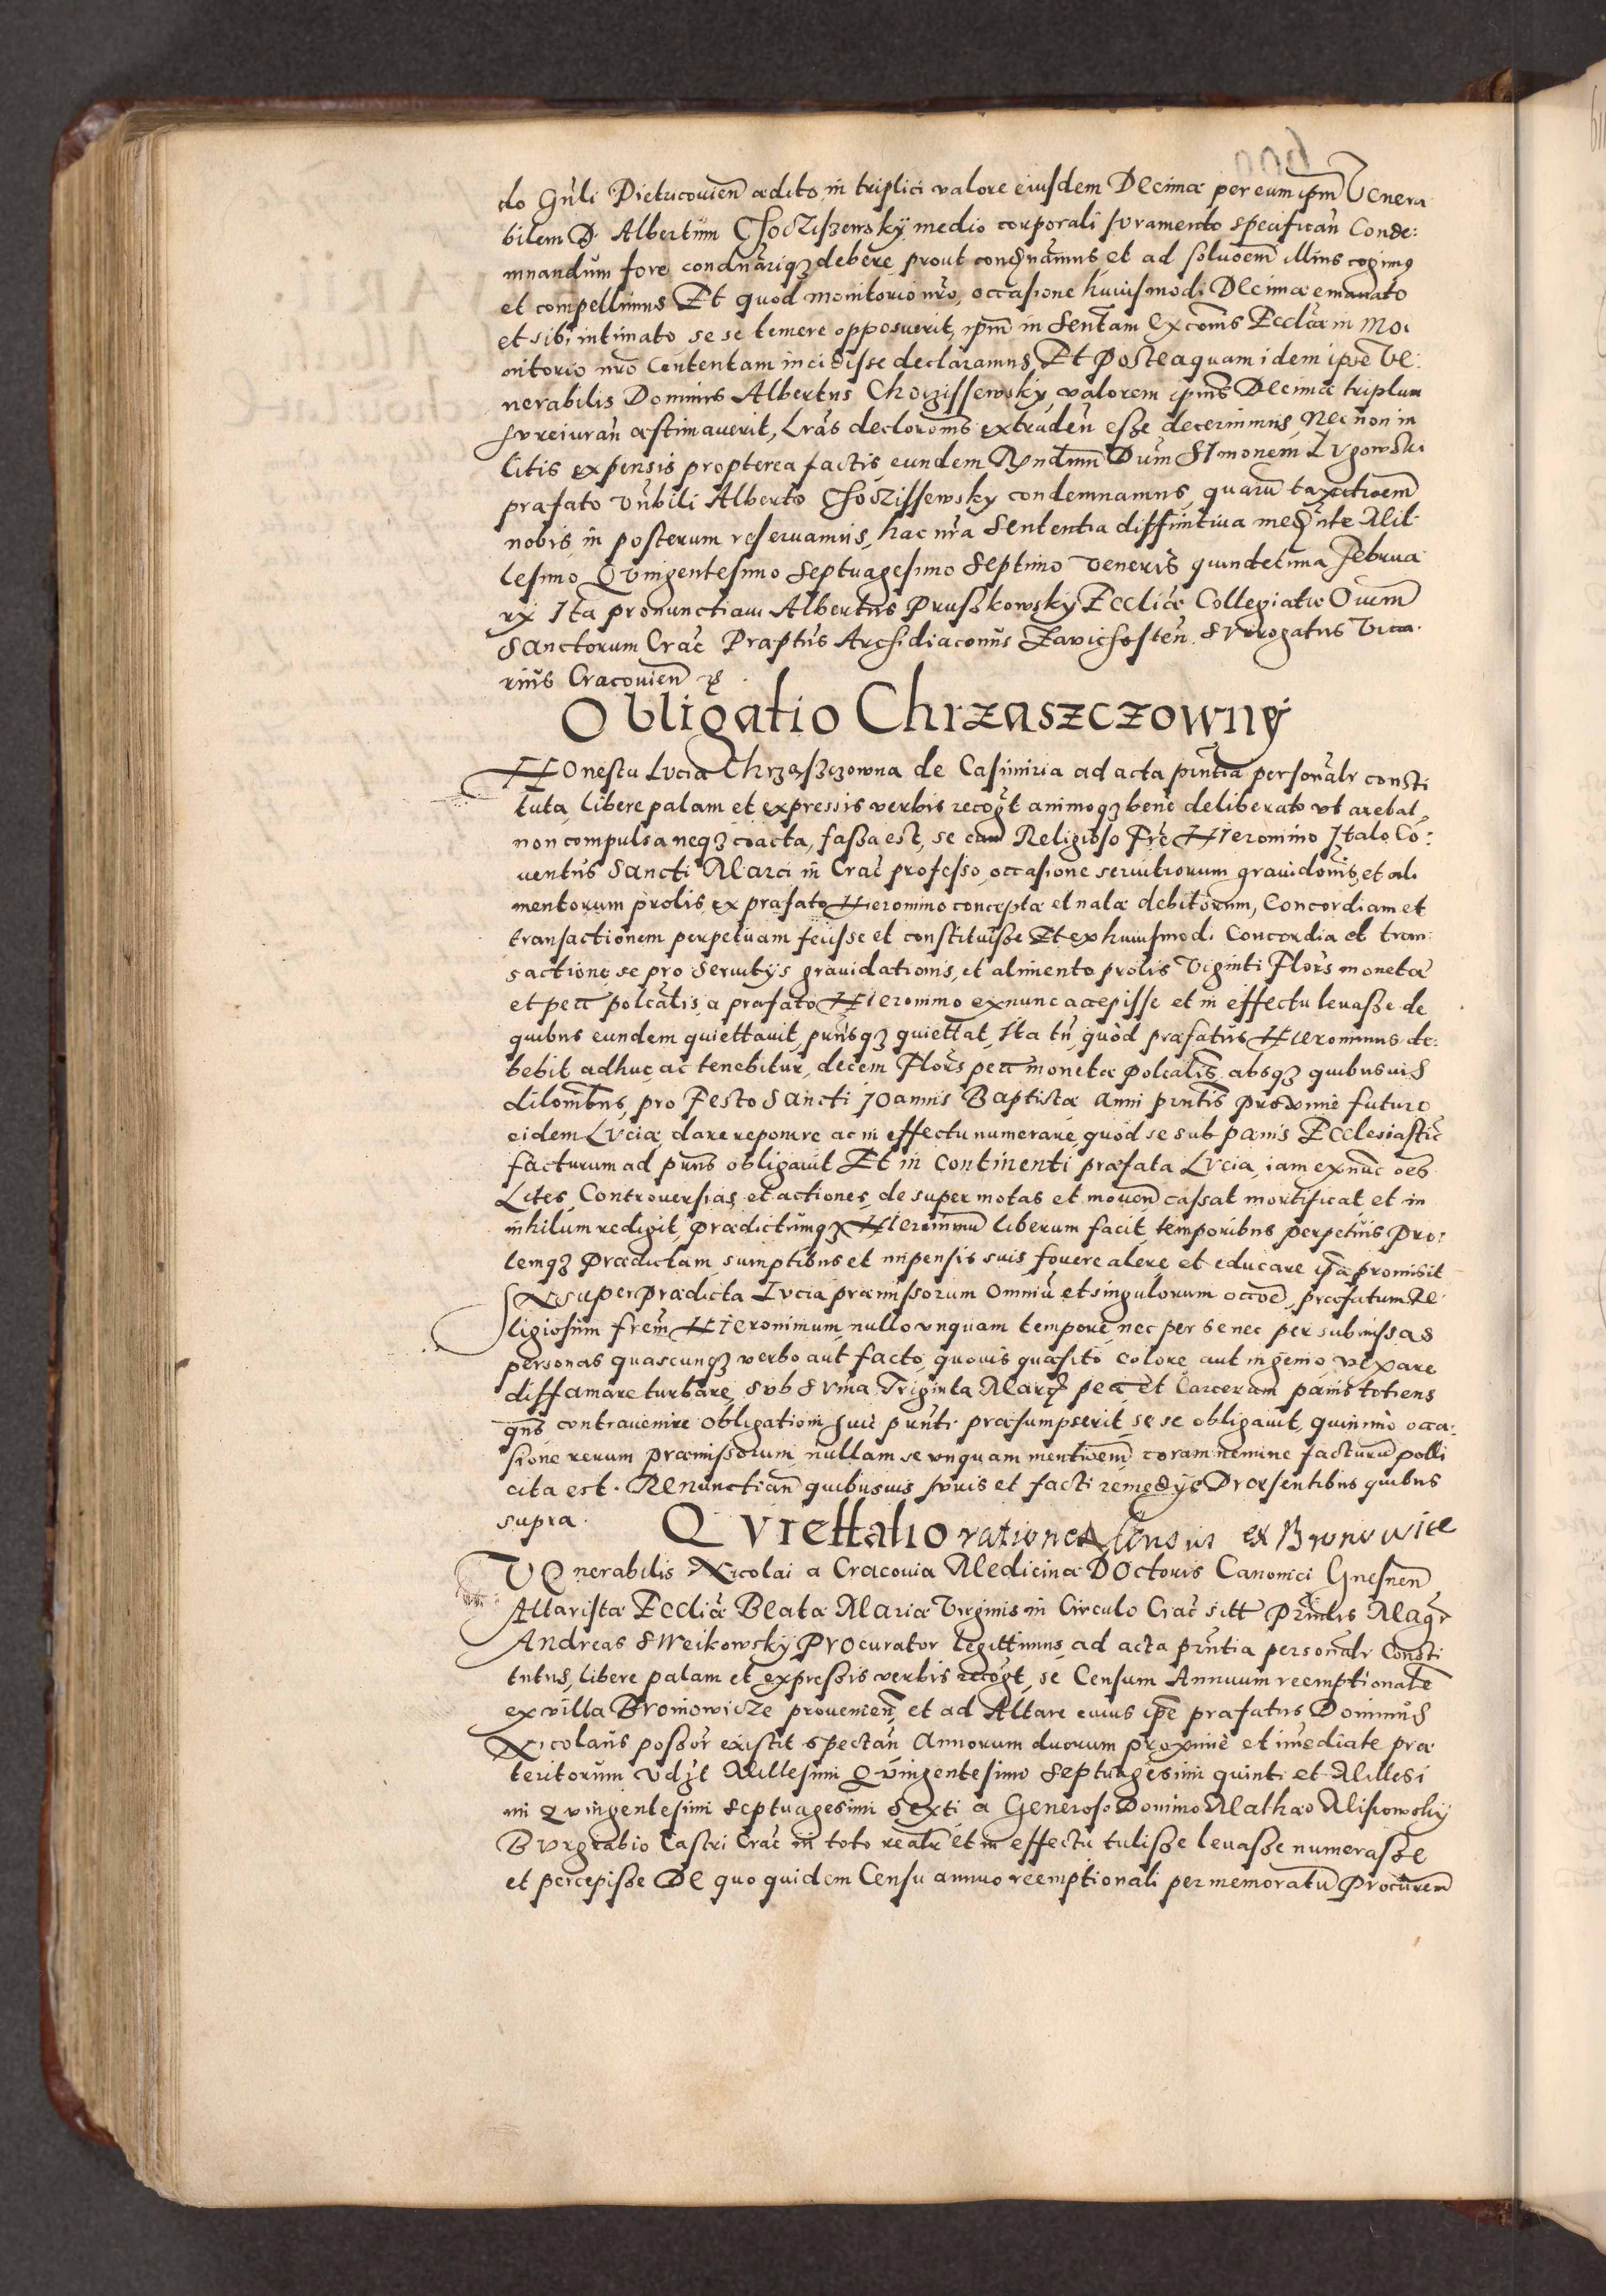 do Gnli Pietricouien ædito, in triplici valore eiusdem Decimæ per eum ipm Venera
bilem D. Albertum Choczischewsky, medio corporali Iuramento specifican Conde:
mnandum fore condnariq3 debere, prout condnamus, et ad soluoem illius cogimus
et compellimus Et quod monitorio nro, occasione huiusmodi Decimæ emanato
et sibi intimato se se temere opposuerit, ipm in Sentam Excoms Ecclæ in Mo:
nitorio nro Contentam incidisse declaramus, Et Posteaquam idem ipse Ve:
nerabilis Dominus Albertus Choczissewsky, valorem ipius Decimæ triplum
Iureiuran æstimauerit, Lras decloroms extraden esse decernimus, Nec non in
litis expensis propterea factis, eundem Rndum Dum Simonem Lugowski
præfato Vnbili Alberto Choczissewsky condemnamus, quaru taxatioem
nobis in posterum reseruamus, hac nra Sententia diffinitiua medjnte Mil
lesimo Quingentesimo Septuagesimo Septimo Veneris quindecima Februa
rij Ita pronunctiaui Albertus Pruszkowsky Eccliæ Collegiatæ Ouim
Sanctorum Crac Præptus Archidiaconus Zavichosten Surrogatus Vica
rius Cracouien
Obligatio Chrzaszczowny
Honesta Lucia Chrzaszczowna de Casimiria ad acta pntia personalr consti
tuta, libere palam et expressis verbis recogt animoq3 bene deliberato vt arebat,
non compulsa neq3 coacta, fassa est, se cum Religioso Fre Hieronimo Italo Co:
uentus Sancti Marci in Crac professo, occasione seruitiorum grauidonis, et ali
mentorum prolis, ex præfato Hieronimo conceptæ et natæ debitorum, Concordiam et
transactionem perpetuam feiisse et constituisse Et ex huiusmodi Concordia et tran
sactione, se pro Seruitijs grauidationis, et alimento prolis Viginti Flors monetæ
et pecu polcalis, a præfato Hieronimo exnunc accepisse et in effectu leuasse de
quibus eundem quiettauit, pntsq3 quiettat, Ita tn, quod præfatus Hieronimus de:
bebit adhuc, ac tenebitur, decem Flors pecu monetæ polcalis, absq3 quibusuis
dilonibus, pro Festo Sancti Joannis Baptistæ anni pntis proxime futuro
eidem Luciæ, dare reponere ac in effectu numerare, quod se sub pænis Ecclesiastic
facturum ad pnns obligauit Et in Continenti præfata Lucia, iam exnuc oes
Lites, Controuersias, et actiones, desuper motas et mouen cassat mortificat, et in
nihilum redigit, prædictumq3 Hieronimu liberum facit, temporibus perpetuis Pro:
lemq3 Prædictam, sumptibus et impensis suis fouere alere et educare ipa promisit
Insuper prædicta Lucia præmissorum omniu et singulorum occoe, præfatum Re
ligiosum frem Hieronimum, nullo vnquam tempore, nec per se nec per submissas
personas quascunq3 verbo aut facto, quouis quæsito colore, aut ingenio, vexare
diffamare turbare, Sub Suma Triginta Marc pecu et Carcerum pænis totiens
qns contrauenire obligationi sue pnti præsumpserit, se se obligauit, quinimo occa:
sione rerum præmissorum, nullam se vnquam mentioem coram nemine facturu polli
cita est. Renunctian quibusuis Iuris et facti remedijs Præsentibus quibus
supra.
Quiettatio ratione Census ex Bronowice
Venerabilis Nicolai a Cracouia Medicinæ Doctoris Canonici Gnesnen
Altaristæ Eccliæ Beatæ Mariæ Virginis in Circulo Crac sitt Prindis Magr
Andreas Sweikowsky, Procurator legittimus, ad acta pntia personalr Consti
tutus, libere palam et expressis verbis recogt, se Censum Annuum reemptionale
ex villa Bronowicze prouenien, et ad Altare cuius ipe præfatus Dominus
Nicolaus possor existit spectan Annorum duorum proxime et imediate præ
teritorum vdzt Millesimi Quingentesimo Septuagesimi quinti et Millesi
mi Quingentesimi Septuagesimi Sexti a Generoso Domino Mathæo Misiowsky
Burgrabio Castri Crac in toto realr et in effectu tulisse leuasse numerasse
et percepisse De quo quidem Censu annuo reemptionali per memoratu Procurem